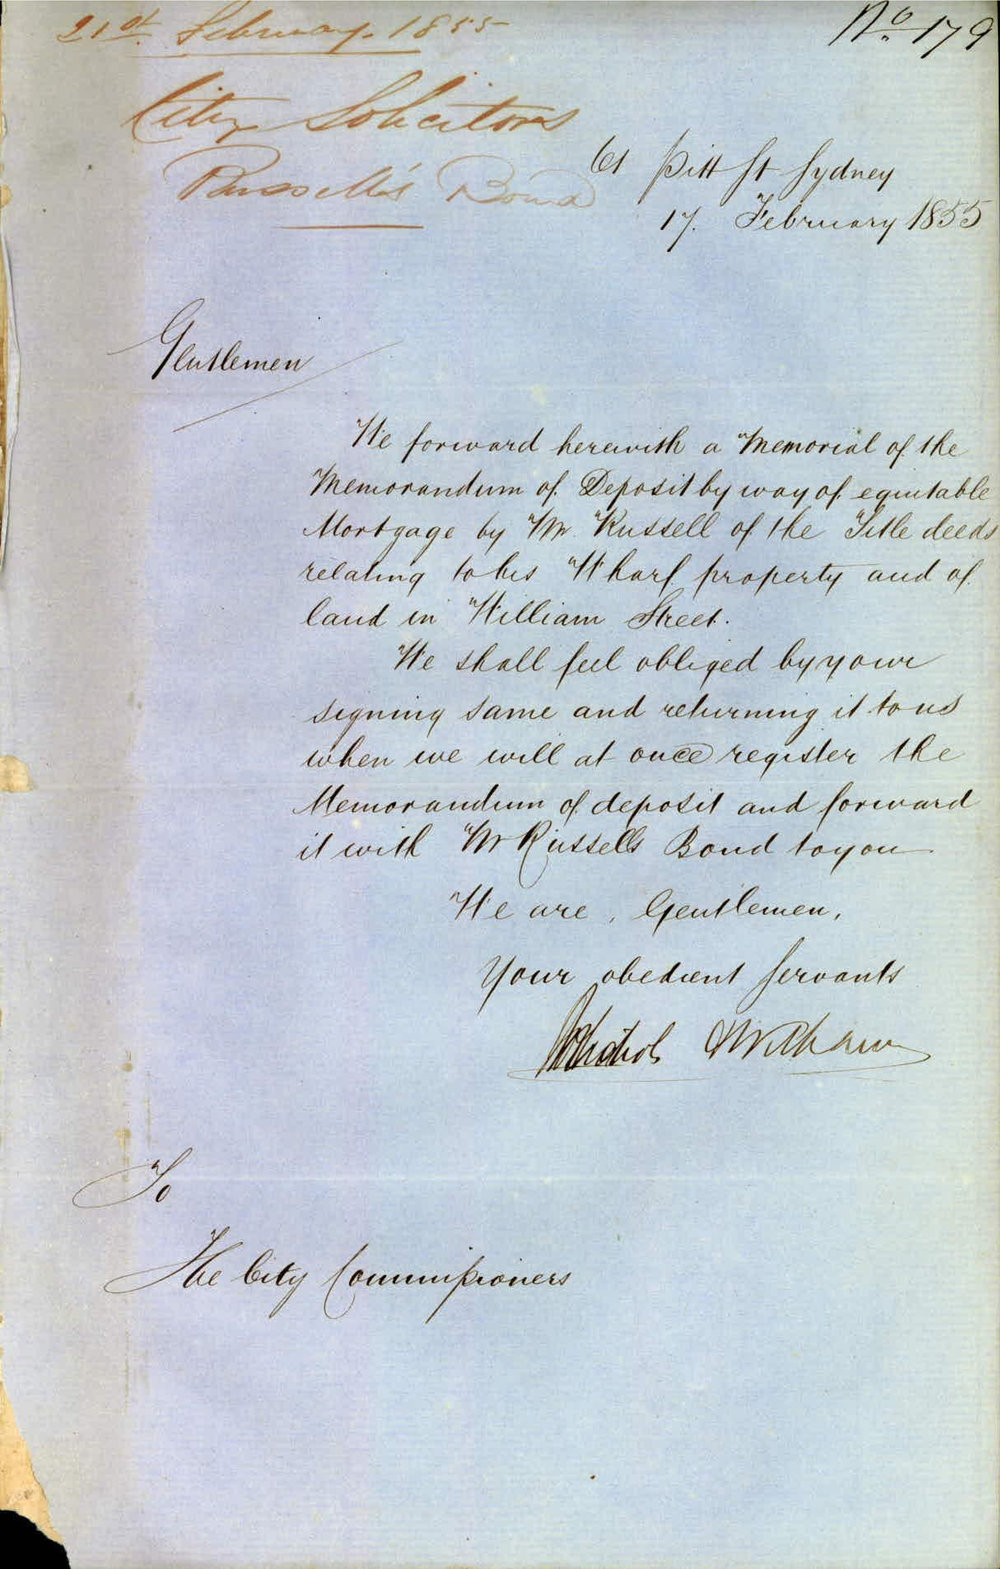 21st. February. 1855
No. 179
City Solicitors
Russell's Bond
61 Pitt St Sydney
17. February 1855
Gentlemen
We forward herewith a Memorial of the
Memorandum of Deposit by way of equitable
Mortgage by Mr. Russell of the Title deeds
relating to his Wharf property and of
land in William Street.
We shall feel obliged by your
signing same and returning it to us
when we will at once register the
Memorandum of deposit and forward
it with Mr Russells Bond to you
We are, Gentlemen,
Your obedient Servants
To
The City Commissioners